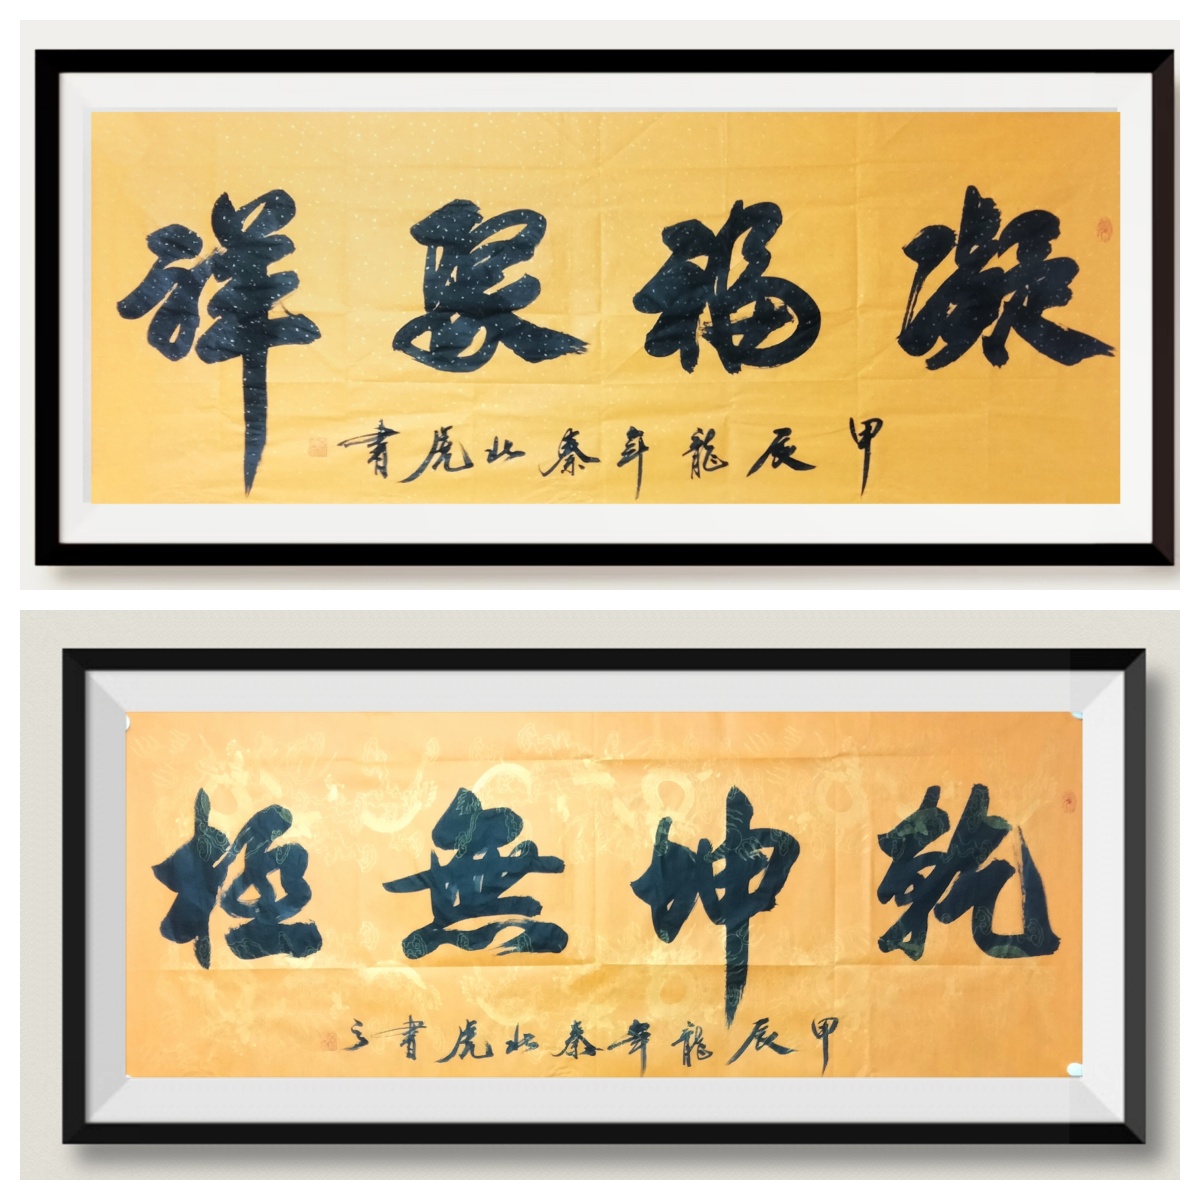 凝福聚祥
甲辰龍年秦北虎書
乾坤無極
甲辰龍年秦北虎書之